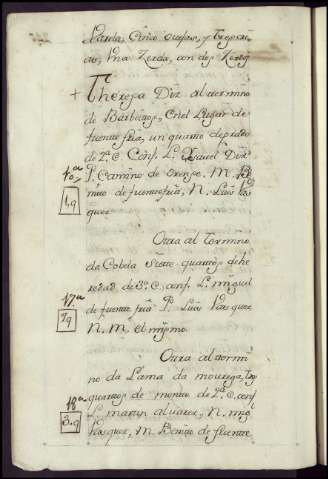 Parda, Cinco ovejas, y tres
Una Zerda, con dos
+ Theresa Diz al termino
de Barbeitos, en el Lugar de
fuente fria, un quarto de prado
de 2ª C. Conf. L. Diz
P. Camino de Orense. M.
mino de fuente fria, N. Luis Vas
quez
1 q
Otra al Termino
da Cobela Siette quartos de he
redad de 3ª C. conf. L. miguel
de fuente fria P. Luis Vasquez
N. M. el mismo
17ª
7 q
Otra al termi
no da Lama da
quartos de monte de 2ª C. conf
L. martin albarez, N. mig
Vasquez, M. Benito de fuente
18ª
3 q